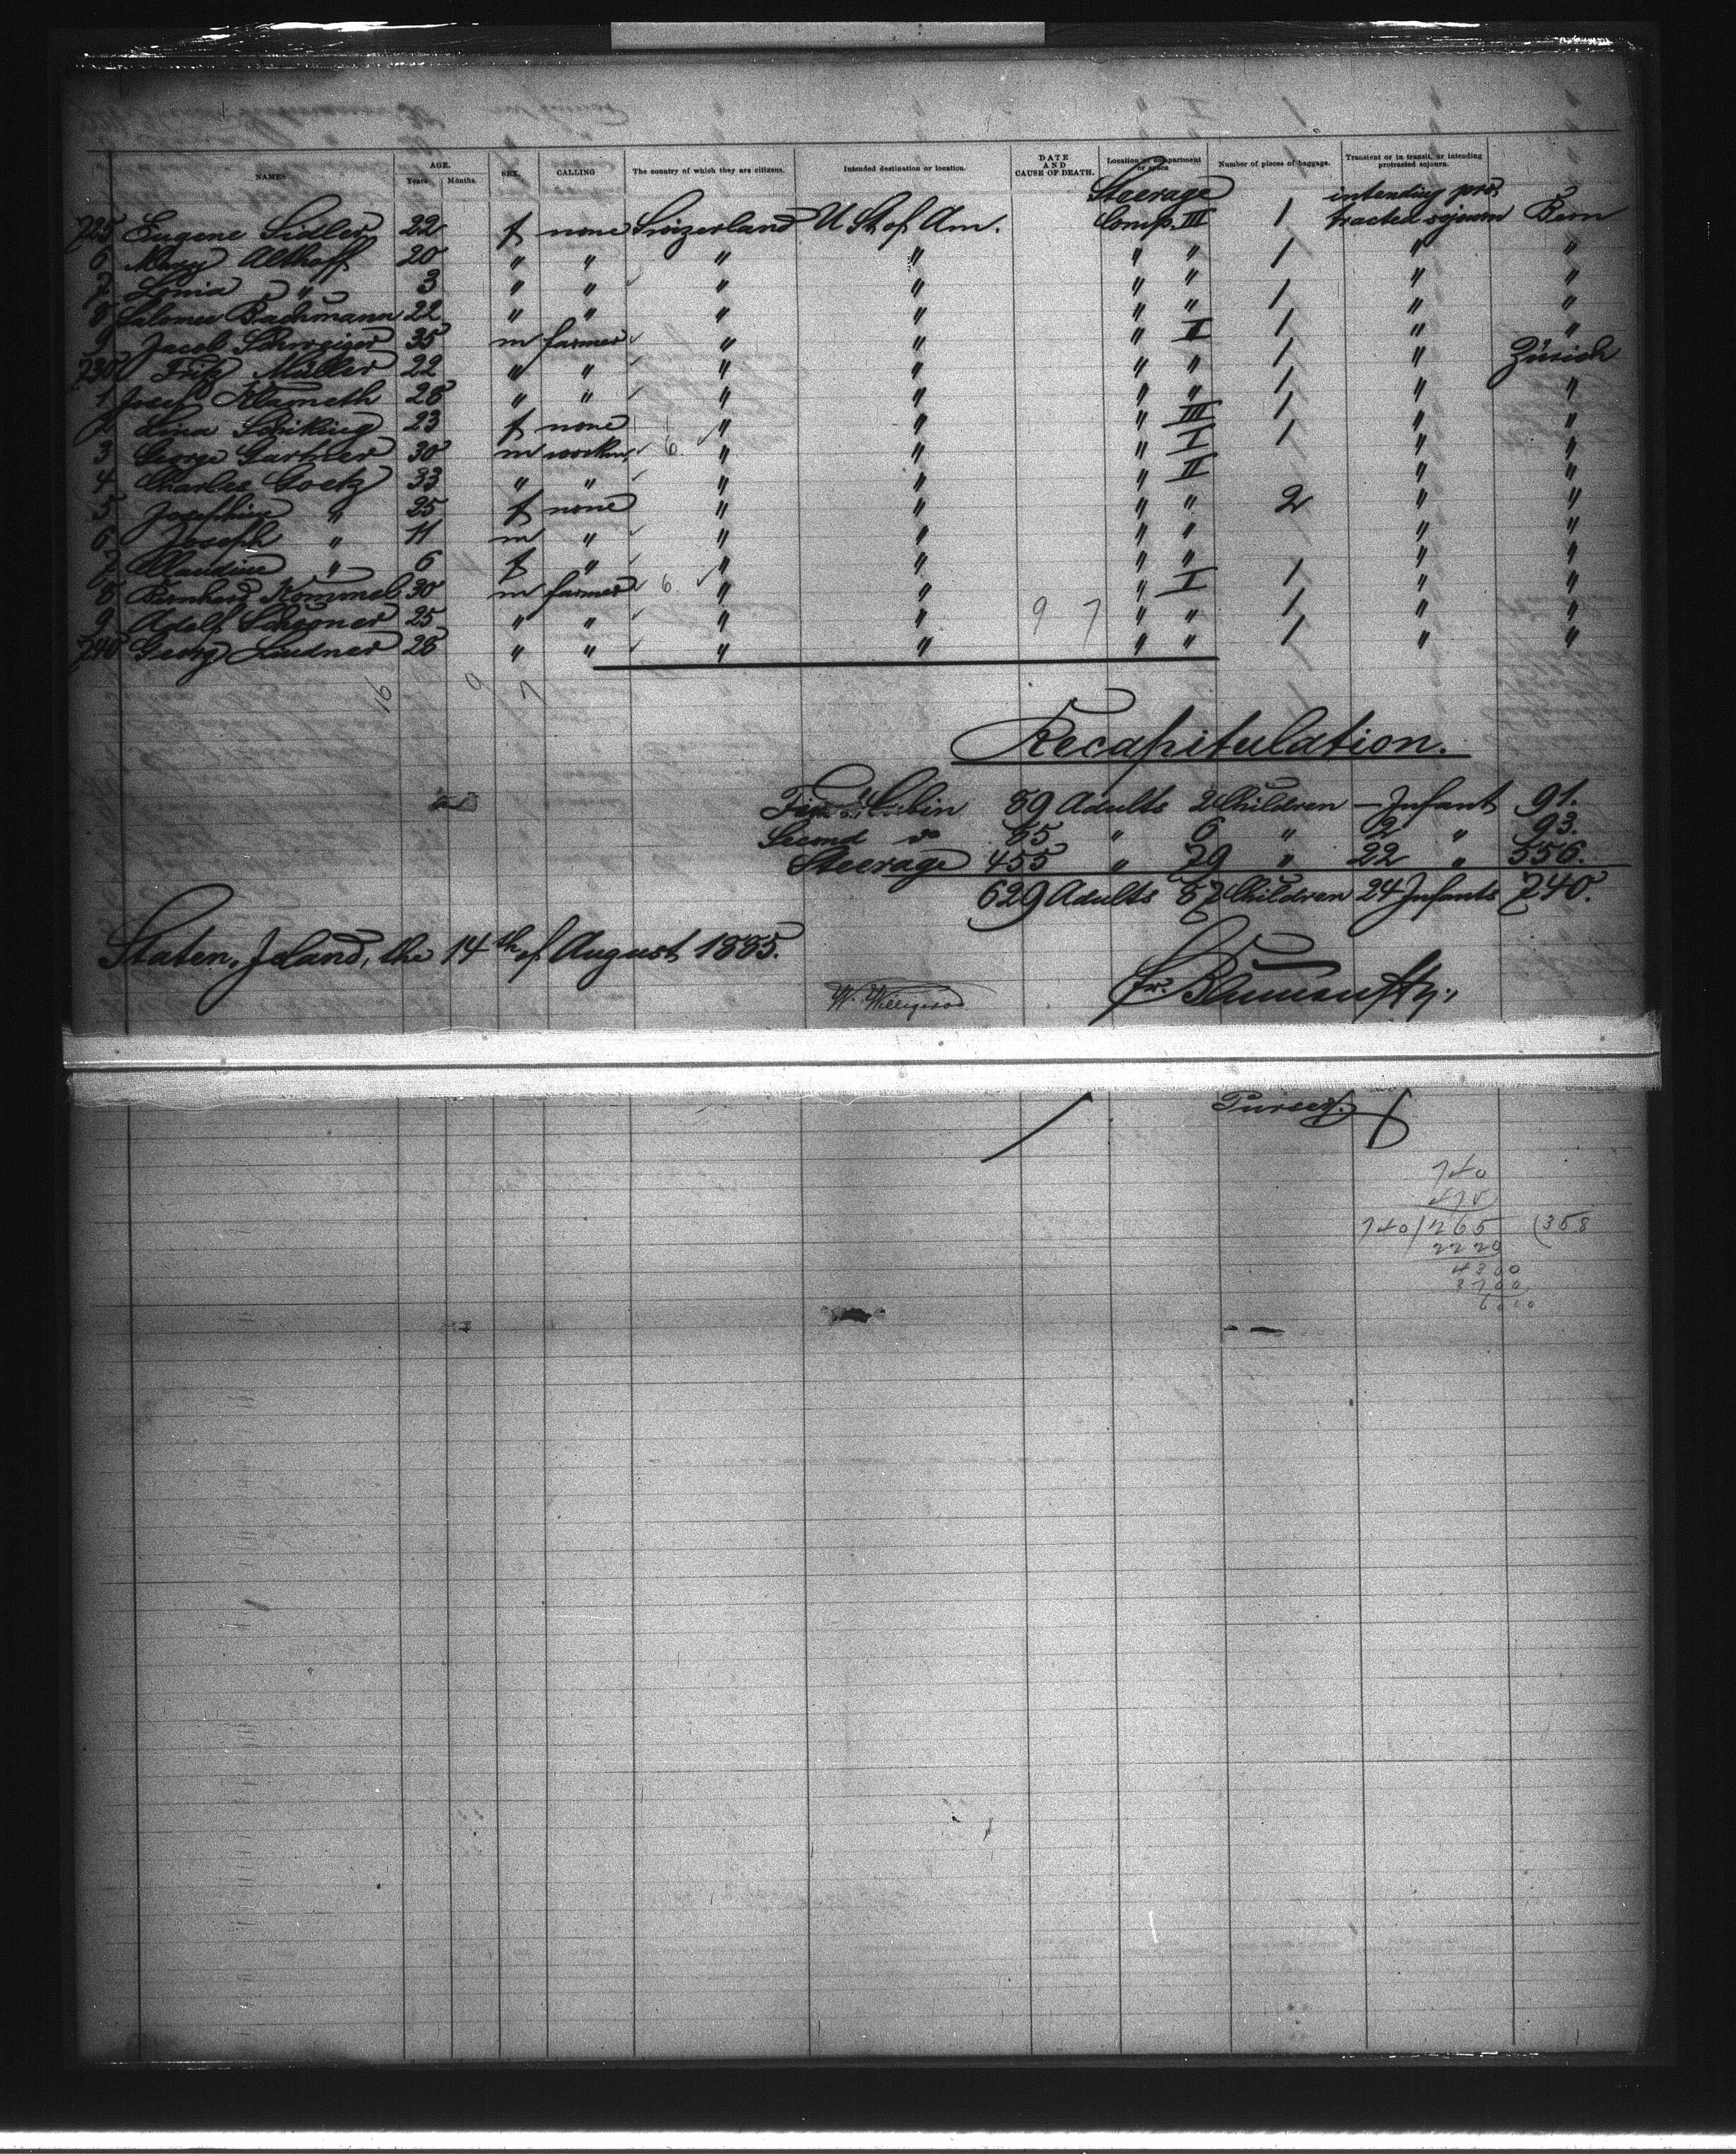 NAMES AGE. Years. Months. SEX. CALLING The country of which they are citizens. Intended destination or location. DATE AND CAUSE OF DEATH. Location of compartment or space Number of pieces of baggage. Transient or in transit, or intending protracted sojourn.
Steerage intending pro-
725 Eugene Sidler 22 f none Swizerland U St. of Am. Comp. III 1 tracted sojourn Bern
6 Mary Althoff 20 " " " " " " 1 " "
7 " 3 " " " " " " " "
8 Salomee Bachmann 22 " " " " " " 1 " "
9 Jacob 35 m farmer " " " II 1 " "
730 Fritz Müller 22 " " " " " " 1 " Zürich
1 Josef Klameth 28 " " " " " " 1 " "
2 Lina 23 f none " " " III 1 " "
3 George Gartner 30 m workm. 6 " " " I 1 " "
4 Charles Goetz 33 " " " " " II " "
5 Josephine " 25 f none " " " " 2 " "
6 Joseph " 11 m " " " " " " "
7 Claudine " 6 f " " " " " " "
8 Bernhard Kommel 30 m farmer 6 " " " I 1 " "
9 Adolf 25 " " " " 9 7 " " 1 " "
740 Georg Lindner 28 " " " " " " 1 " "
16 9 7
Recapitulation.
First Cabin 89 Adults 2 Children — Infant 91.
Second do 85 " 6 " 2 " 93.
Steerage 455 " 79 " 22 " 556.
629 Adults 87 Children 24 Infants 740.
Staten Island, the 14th of August 1885.
W. Willigerod
Purser.
740
475
740/265 (358
2220
4300
3700
6000